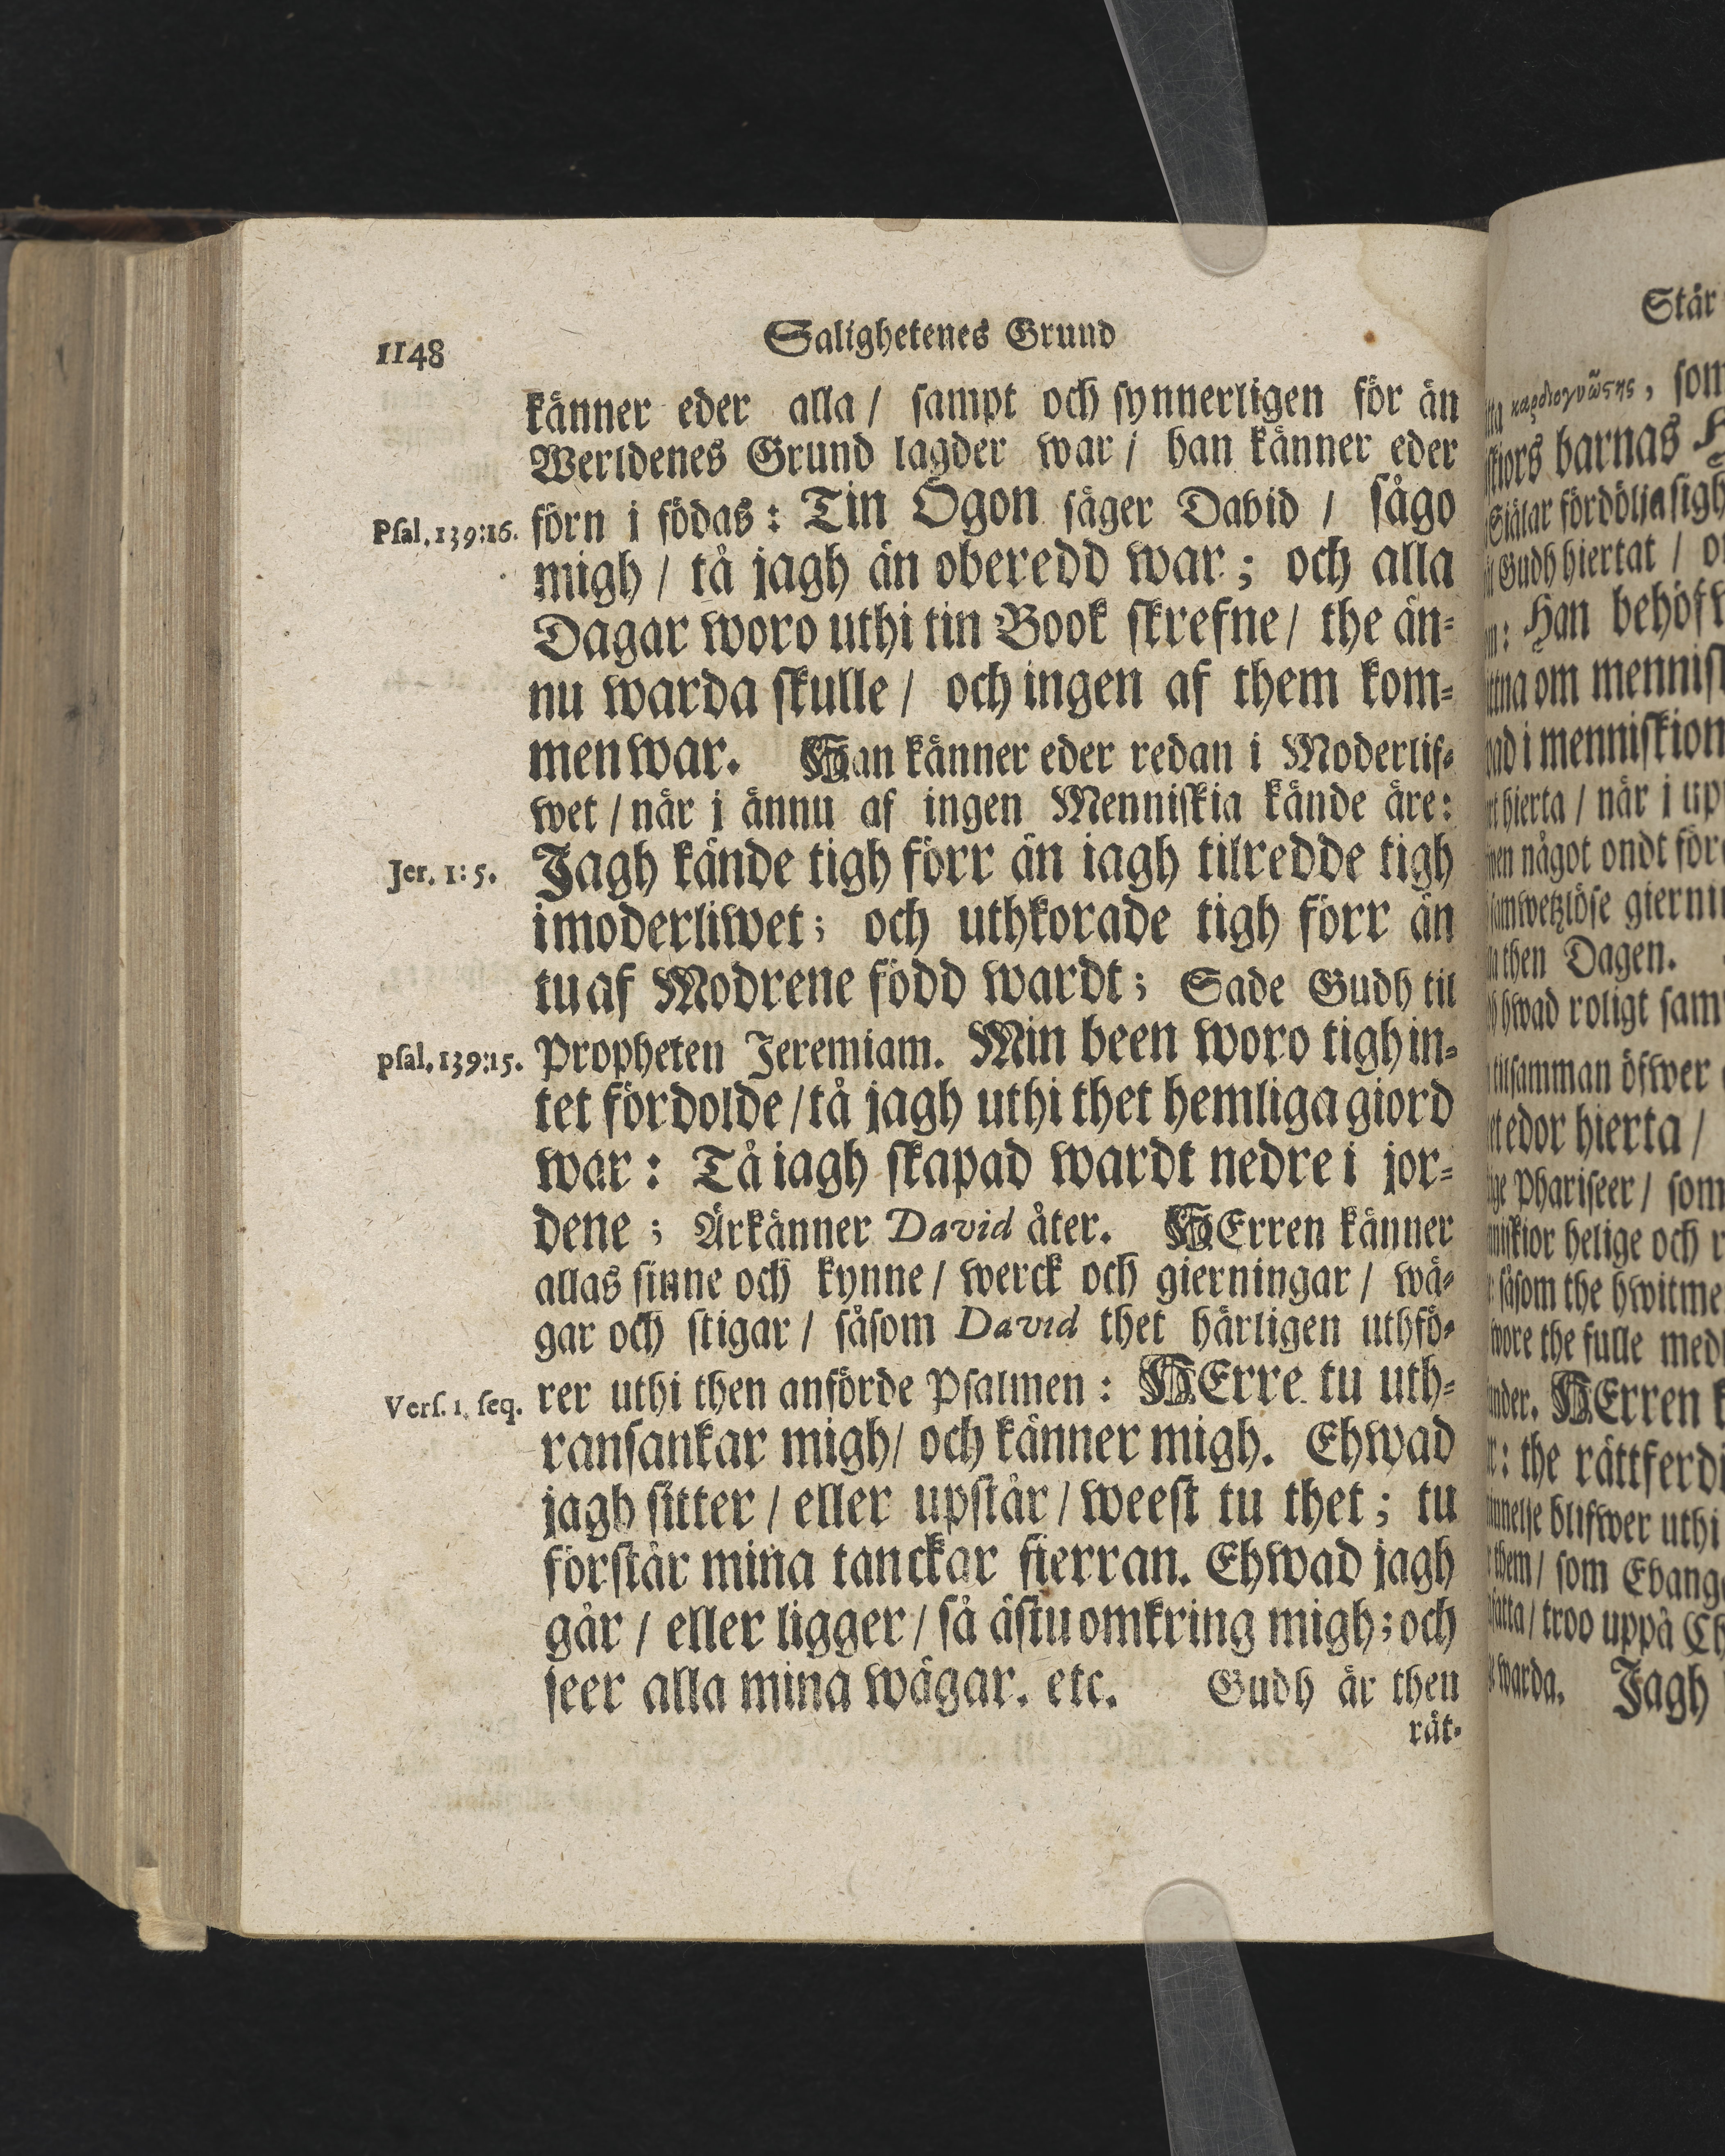 1148
Salighetenes Grund
känner eder alla / sampt och synnerligen för än
Werldenes Grund lagder war / han känner eder
Psal. 139:16. förn i födas: Tin Ögon säger David / sågo
migh / tå jagh än oberedd war; och alla
Dagar woro uthi tin Book skrefne / the än-
nu warda skulle / och ingen af them kom-
men war. Han känner eder redan i Moderlif-
wet / når j ännu af ingen Menniskia kände äre:
Jer. 1: 5. Jagh kände tigh förr än iagh tilredde tigh
i moderliwet; och uthkorade tigh förr än
tu af Modrene född wardt; Sade Gudh til
psal. 139:15. Propheten Jeremiam. Min been woro tigh in-
tet fördolde / tå jagh uthi thet hemliga giord
war: Tå iagh skapad wardt nedre i jor-
dene; Ärkänner David åter. HErren känner
allas sinne och kynne / werck och gierningar / wä-
gar och stigar / såsom David thet härligen uthfö-
Vers. 1. seq. rer uthi then anförde Psalmen: HErre tu uth-
ransankar migh / och känner migh. Ehwad
jagh sitter / eller upstår / weest tu thet; tu
förstår mina tanckar fierran. Ehwad jagh
går / eller ligger / så ästu omkring migh; och
seer alla mina wägar. etc. Gudh är then
rät-
Står
καρδιογνώστης, som
barnas
fördölja sigh
Gudh hiertat /
Han behöfw
om
i menniskion
hierta / när j up
något ondt för
giernin
then Dagen.
hwad roligt sam
tilsamman öfwer
edor hierta /
Phariseer / som
helige och
såsom the hwitme
wore the fulle med
HErren
: the rättferdi
blifwer uthi
them / som Evang
troo uppå Ch
warda. Jagh